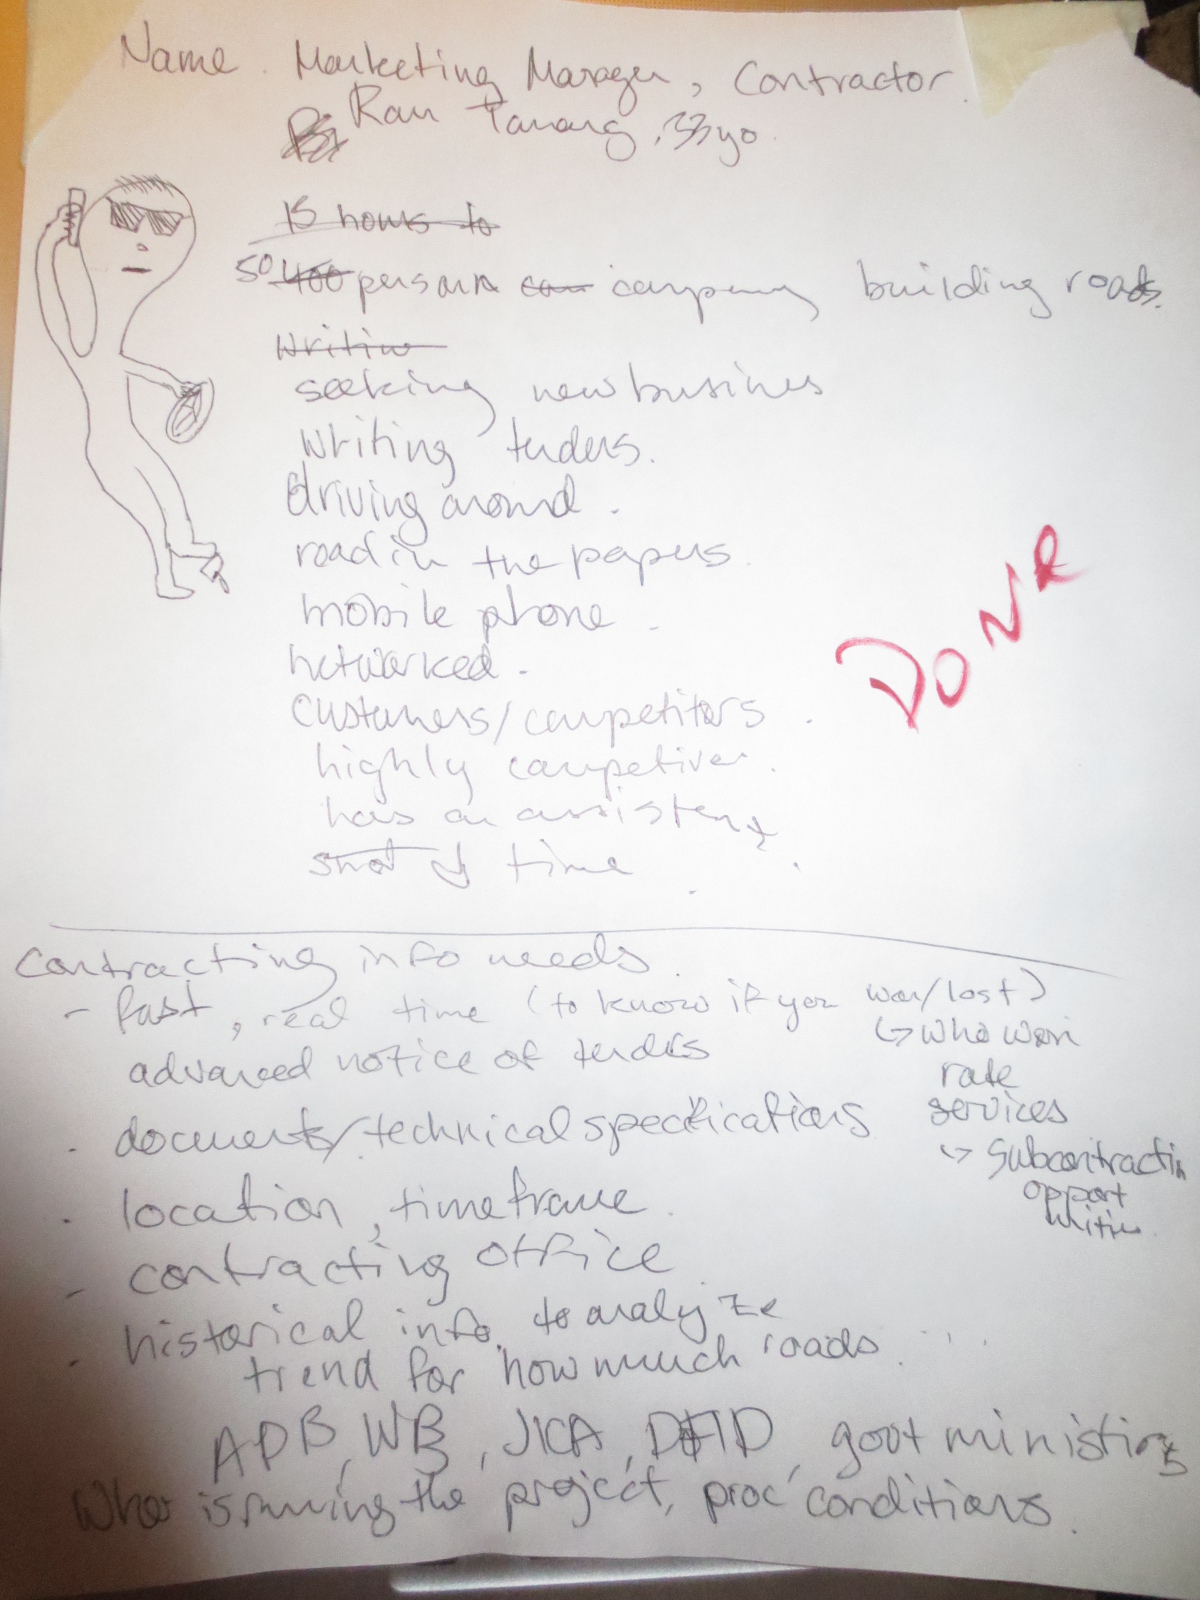 Name. Marketing Manager, Contractor.
Ram Tamang, 33 yo.
15 hours to
50 400 person com company building roads.
writin
seeking new business
writing tenders.
driving around.
road in the papers.
mobile phone.
networked.
customers/competitors.
highly competitive.
has an assistent
short of time.
DONE
Contracting info needs.
- fast, real time (to know if you won/lost)
↳ who won
advanced notice of tenders
rate
services
. documents/technical specifications
↳ subcontractin
opport
unities
. location, timeframe.
- contracting office.
. historical info. to analyze
trend for how much roads. ...
ADB, WB, JICA, DFID, govt ministries
Who is running the project, proc' conditions.